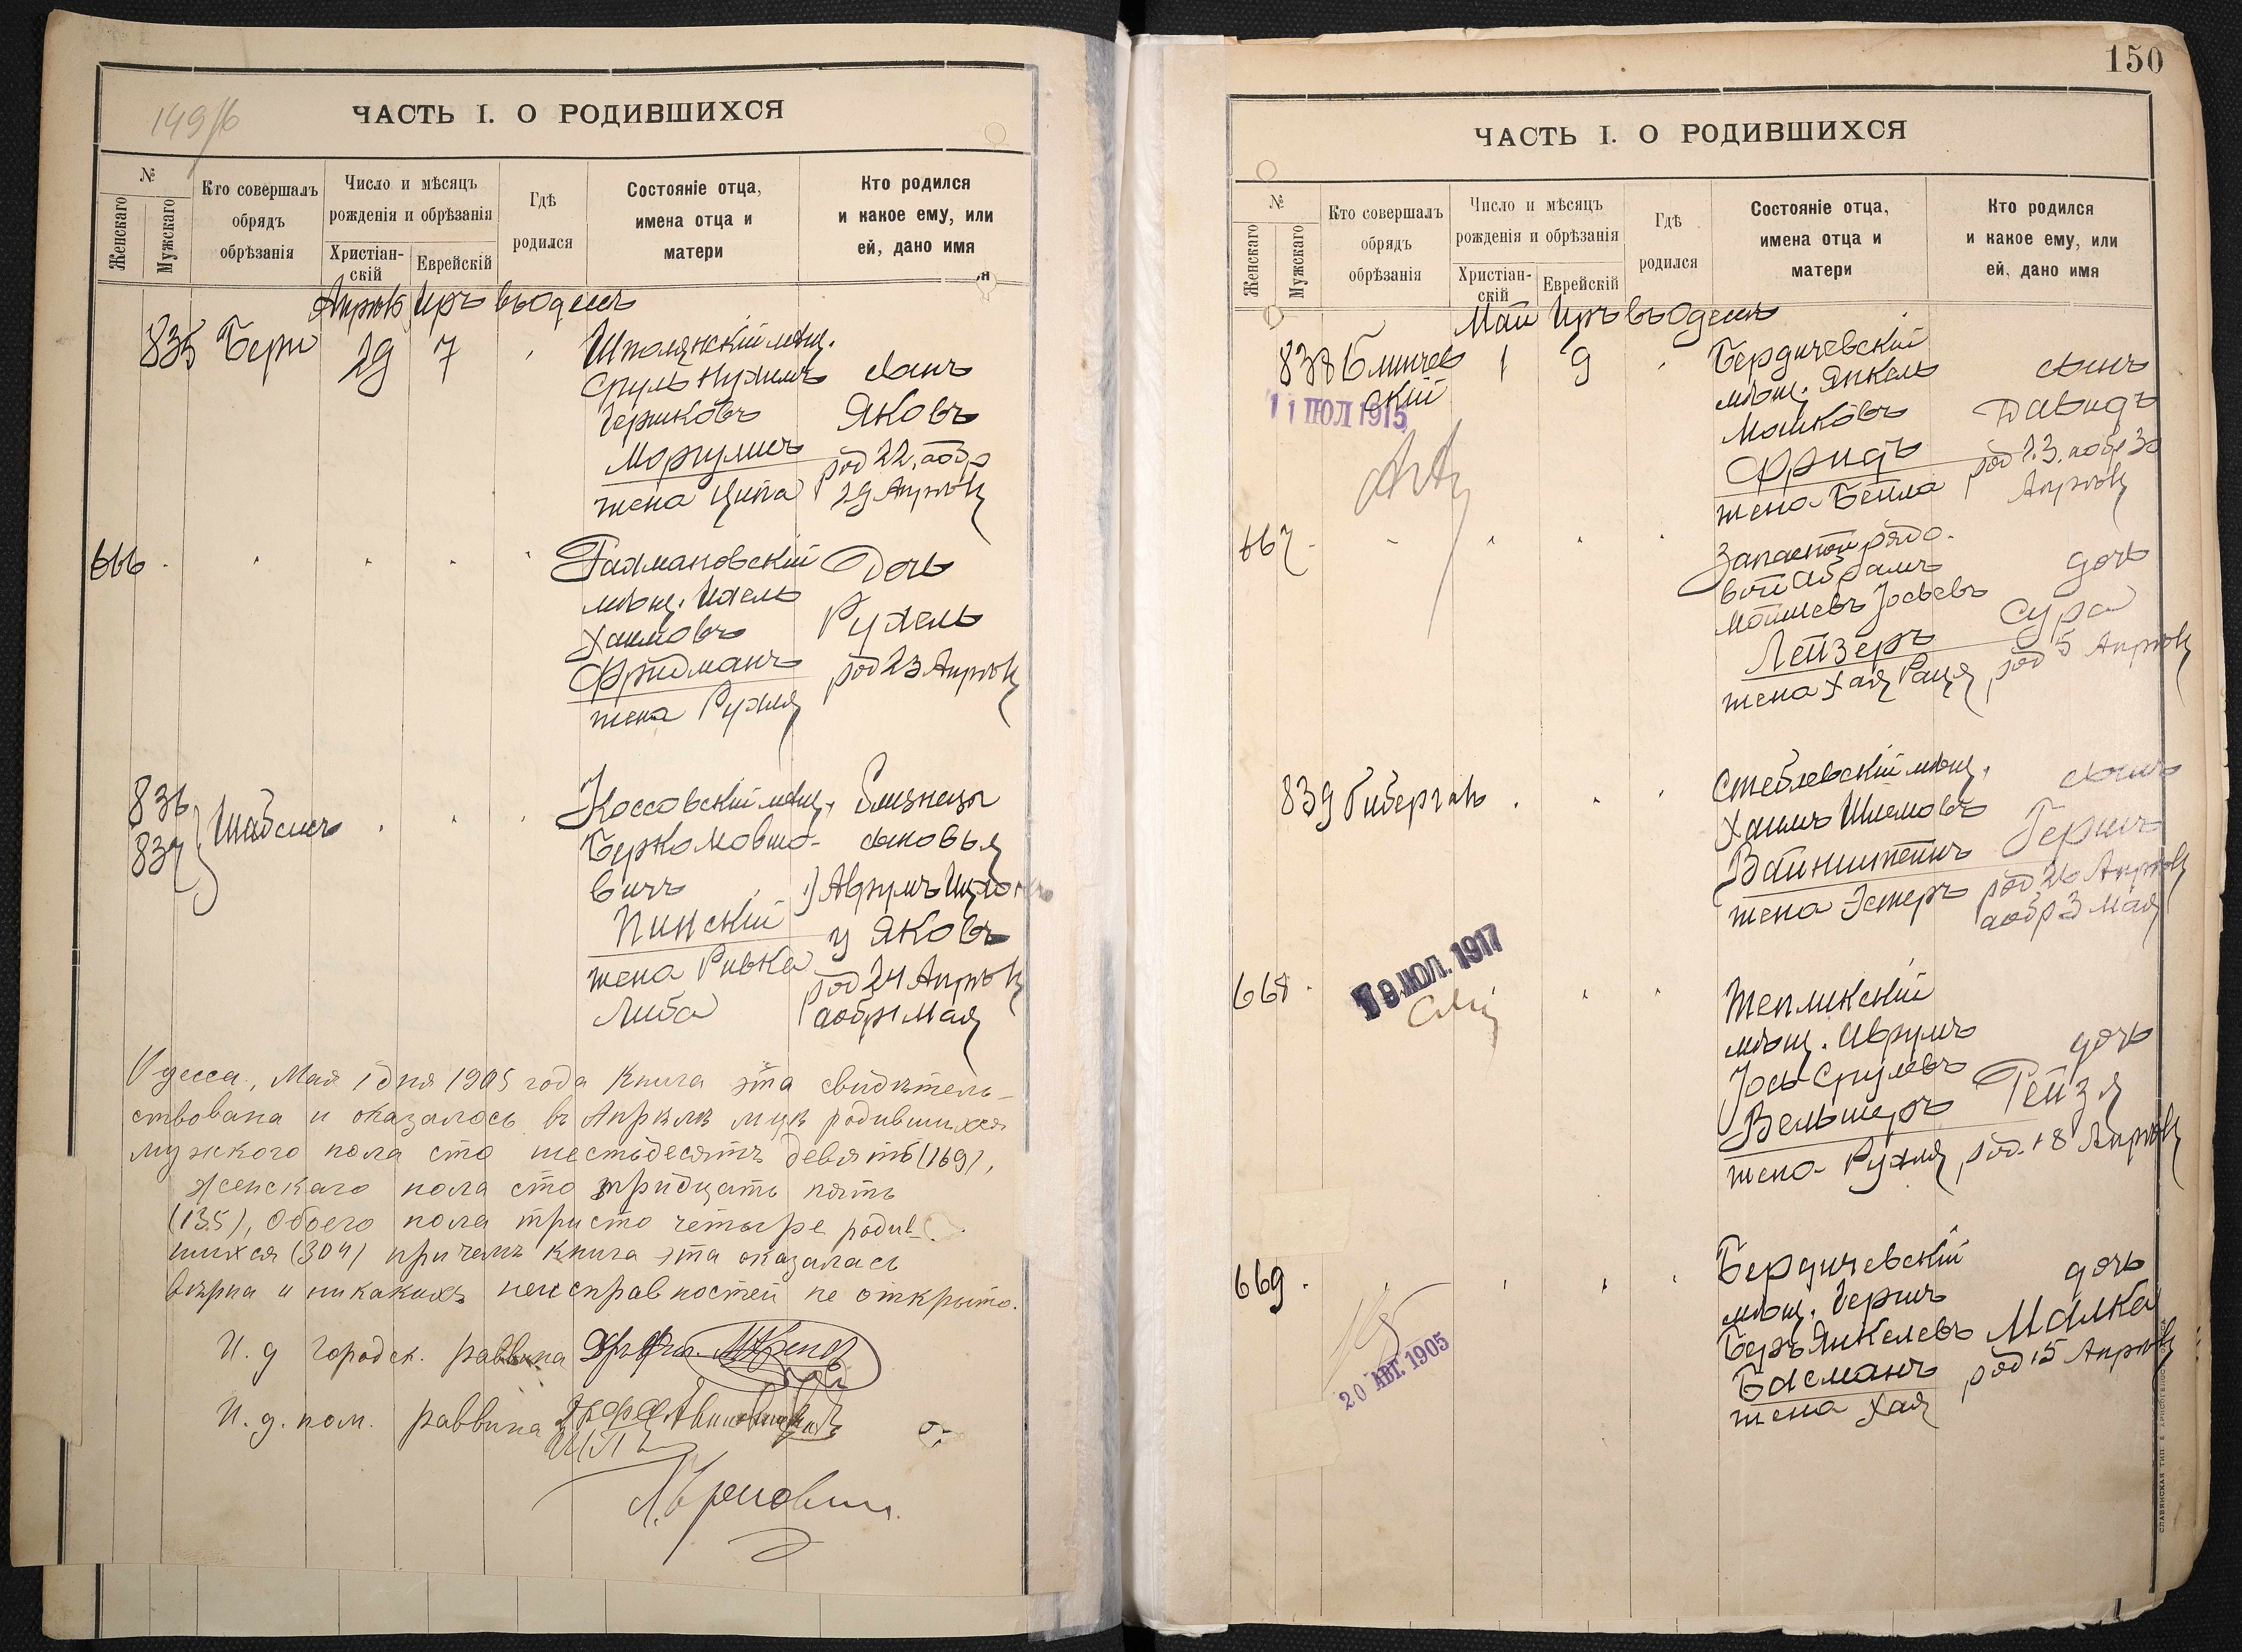 149/б
ЧАСТЬ I. О РОДИВШИХСЯ
№
Женскаго
Мужскаго
Кто совершалъ
обрядъ
обрѣзанія
Число и мѣсяцъ
рожденія и обрѣзанія
Христіан-
скій
Еврейскій
Гдѣ
родился
Состояніе отца,
имена отца и
матери
Кто родился
и какое ему, или
ей, дано имя
Апрѣль Иръ въ Одессѣ
835 Бери 29 7
Шполянскій мѣщ.
Сруль Нухимъ
Гершковъ
Моргулисъ
жена Ципа
сынъ
Яковъ
род 22, а обр
29 Апрѣля
666
Рахмановскій
мѣщ. Ихель
Хаимовъ
Фридманъ
жена Рухля
Дочь
Рухель
род 23 Апрѣля
836
837
Шабсисъ
Коссовскій мѣщ.
Берко Мовшо-
вичъ
Пинскій
жена Ривка
Либа
близнецы
сыновья
1) Аврумъ
2 Яковъ
род 24 Апрѣля
а обр 1 Мая
Одесса, Мая 1 дня 1905 года Книга эта свидѣтель-
ствована и оказалось въ Апрѣлѣ мцѣ родившихся
мужского пола сто шестьдесятъ девять (169),
женскаго пола сто тридцать пять
(135), Обоего пола триста четыре родив-
шихся (304) причемъ книга эта оказалась
вѣрна и никакихъ неисправностей не открыто.
И. д городск. раввина
И. д. пом. раввина
150
ЧАСТЬ I. О РОДИВШИХСЯ
№
Женскаго
Мужскаго
Кто совершалъ
обрядъ
обрѣзанія
Число и мѣсяцъ
рожденія и обрѣзанія
Христіан-
скій
Еврейскій
Гдѣ
родился
Состояніе отца,
имена отца и
матери
Кто родился
и какое ему, или
ей, дано имя
Май Иръ въ Одессѣ
838 1 9
скій
11 ИЮЛ 1915
Бердичевскій
мѣщ. Янкель
Мошковъ
Фридъ
жена Бейла
сынъ
Давидъ
род 23, а обр 30
Апрѣля
667
Запасной рядо-
вой Абрамъ
Мошевъ Іосьевъ
Лейзеръ
жена Хая Рація
дочь
Сура
род 5 Апрѣля
839 Гибергалъ
Стеблевскій мѣщ.
Хаимъ Шлемовъ
Вайнштейнъ
жена Эстеръ
сынъ
Гершъ
род 26 Апрѣля
а обр 3 Мая
668
19 ИЮЛ. 1917
Тепликскій
мѣщ. Аврумъ
Іось Срулевъ
Вельшеръ
жена Рухля
дочь
Рейзя
род. 18 Апрѣля
669
20 АВГ. 1905
Бердичевскій
мѣщ. Гершъ
Беръ Янкелевъ
Басманъ
жена Хая
дочь
Малка
род 15 Апрѣля